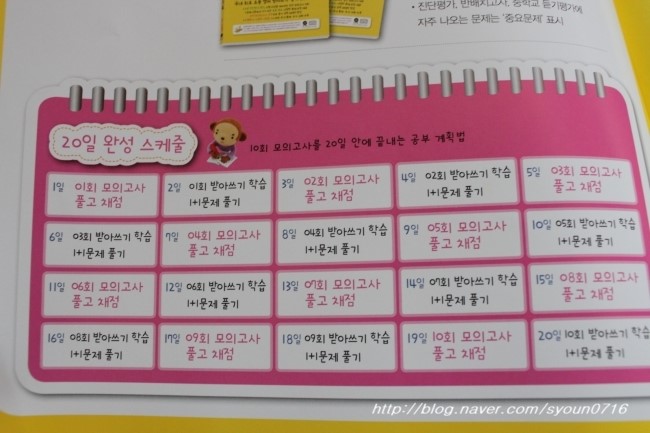 • 진단평가, 반배치고사, 중학교 듣기평가에
자주 나오는 문제는 '중요문제' 표시
20일 완성 스케줄
10회 모의고사를 20일 안에 끝내는 공부 계획법
1일 01회 모의고사
풀고 채점
2일 01회 받아쓰기 학습
1+1문제 풀기
3일 02회 모의고사
풀고 채점
4일 02회 받아쓰기 학습
1+1문제 풀기
5일 03회 모의고사
풀고 채점
6일 03회 받아쓰기 학습
1+1문제 풀기
7일 04회 모의고사
풀고 채점
8일 04회 받아쓰기 학습
1+1문제 풀기
9일 05회 모의고사
풀고 채점
10일 05회 받아쓰기 학습
1+1문제 풀기
11일 06회 모의고사
풀고 채점
12일 06회 받아쓰기 학습
1+1문제 풀기
13일 07회 모의고사
풀고 채점
14일 07회 받아쓰기 학습
1+1문제 풀기
15일 08회 모의고사
풀고 채점
16일 08회 받아쓰기 학습
1+1문제 풀기
17일 09회 모의고사
풀고 채점
18일 09회 받아쓰기 학습
1+1문제 풀기
19일 10회 모의고사
풀고 채점
20일 10회 받아쓰기 학습
1+1문제 풀기
http://blog.naver.com/syoun0716